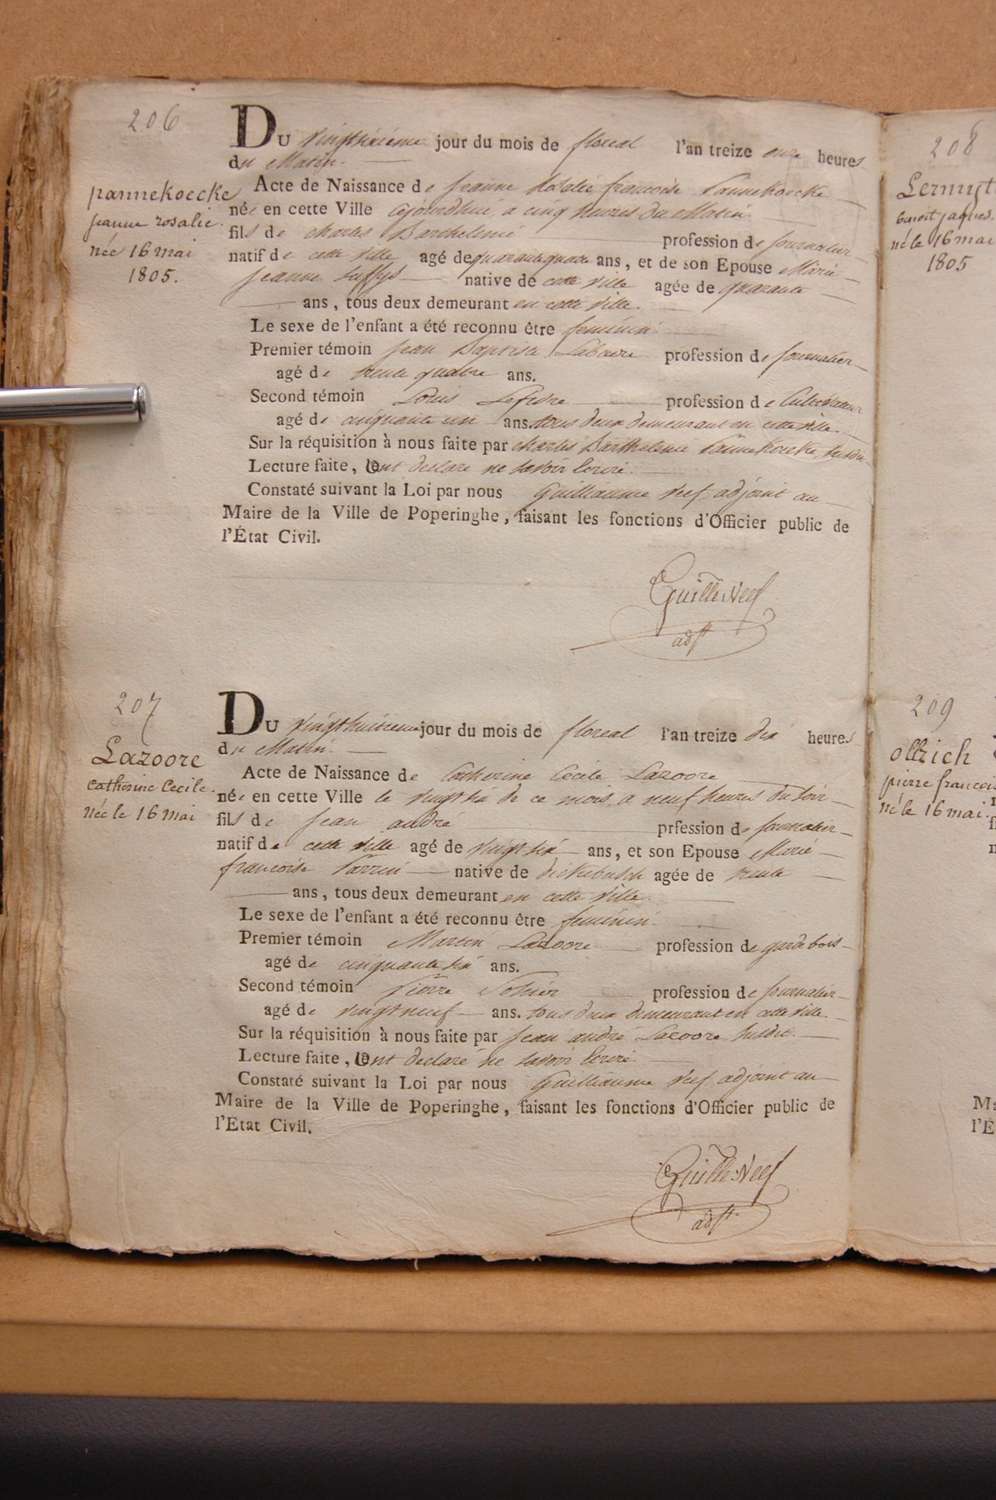 206
pannekoecke
jeanne rosalie.
née 16 mai
1805.
Du vingtsixieme jour du mois de floreal l'an treize onze heures
du Matin.
Acte de Naissance de Jeanne Rosalie francoise Pannekoecke
née en cette Ville aujourdhui a cinq heures du Matin
fils de charles Barthelemi profession de journalier
natif de cette ville agé de quarantequatre ans, et de son Epouse Marie
Jeanne native de cette ville agée de quarante
ans, tous deux demeurant en cette ville.
Le sexe de l'enfant a été reconnu être feminin.
Premier témoin Jean Baptiste profession de journalier
agé de trente quatre ans.
Second témoin Louis Lefevre profession de Cultivateur
agé de cinquante un ans. tous deux demeurant en cette ville.
Sur la réquisition à nous faite par charles Barthelemi Pannekoecke
Lecture faite, ont declaré ne savoir écrire.
Constaté suivant la Loi par nous Guillaume Neef adjoint au
Maire de la Ville de Poperinghe, faisant les fonctions d'Officier public de
l'État Civil.
Guille Neef
adjt
207
Lazoore
catherine Cecile.
née le 16 mai
Du vingthuitieme jour du mois de floreal l'an treize dix heures
du Matin.
Acte de Naissance de Catherine Cecile Lazoore
née en cette Ville le vingtsix de ce mois, a neuf heures du soir
fils de Jean andré prfession de journalier
natif de cette ville agé de vingt six ans, et son Epouse Marie
francoise native de agée de trente
ans, tous deux demeurant en cette ville.
Le sexe de l'enfant a été reconnu être feminin.
Premier témoin Martin Lazoore profession de gardebois
agé de cinquante six ans.
Second témoin Pierre profession de journalier
agé de vingtneuf ans. tous deux demeurant en cette ville.
Sur la réquisition à nous faite par Jean andré Lazoore susdit.
Lecture faite, ont declaré ne savoir écrire
Constaté suivant la Loi par nous Guilliaume Neef adjoint au
Maire de la Ville de Poperinghe, faisant les fonctions d'Officier public de
l'Etat Civil.
Guille Neef
adjt.
208
Lermyt
benoit jaques.
né le 16 mai
1805
209
ollrich
pierre francois
né le 16 mai.
Ma
l'É